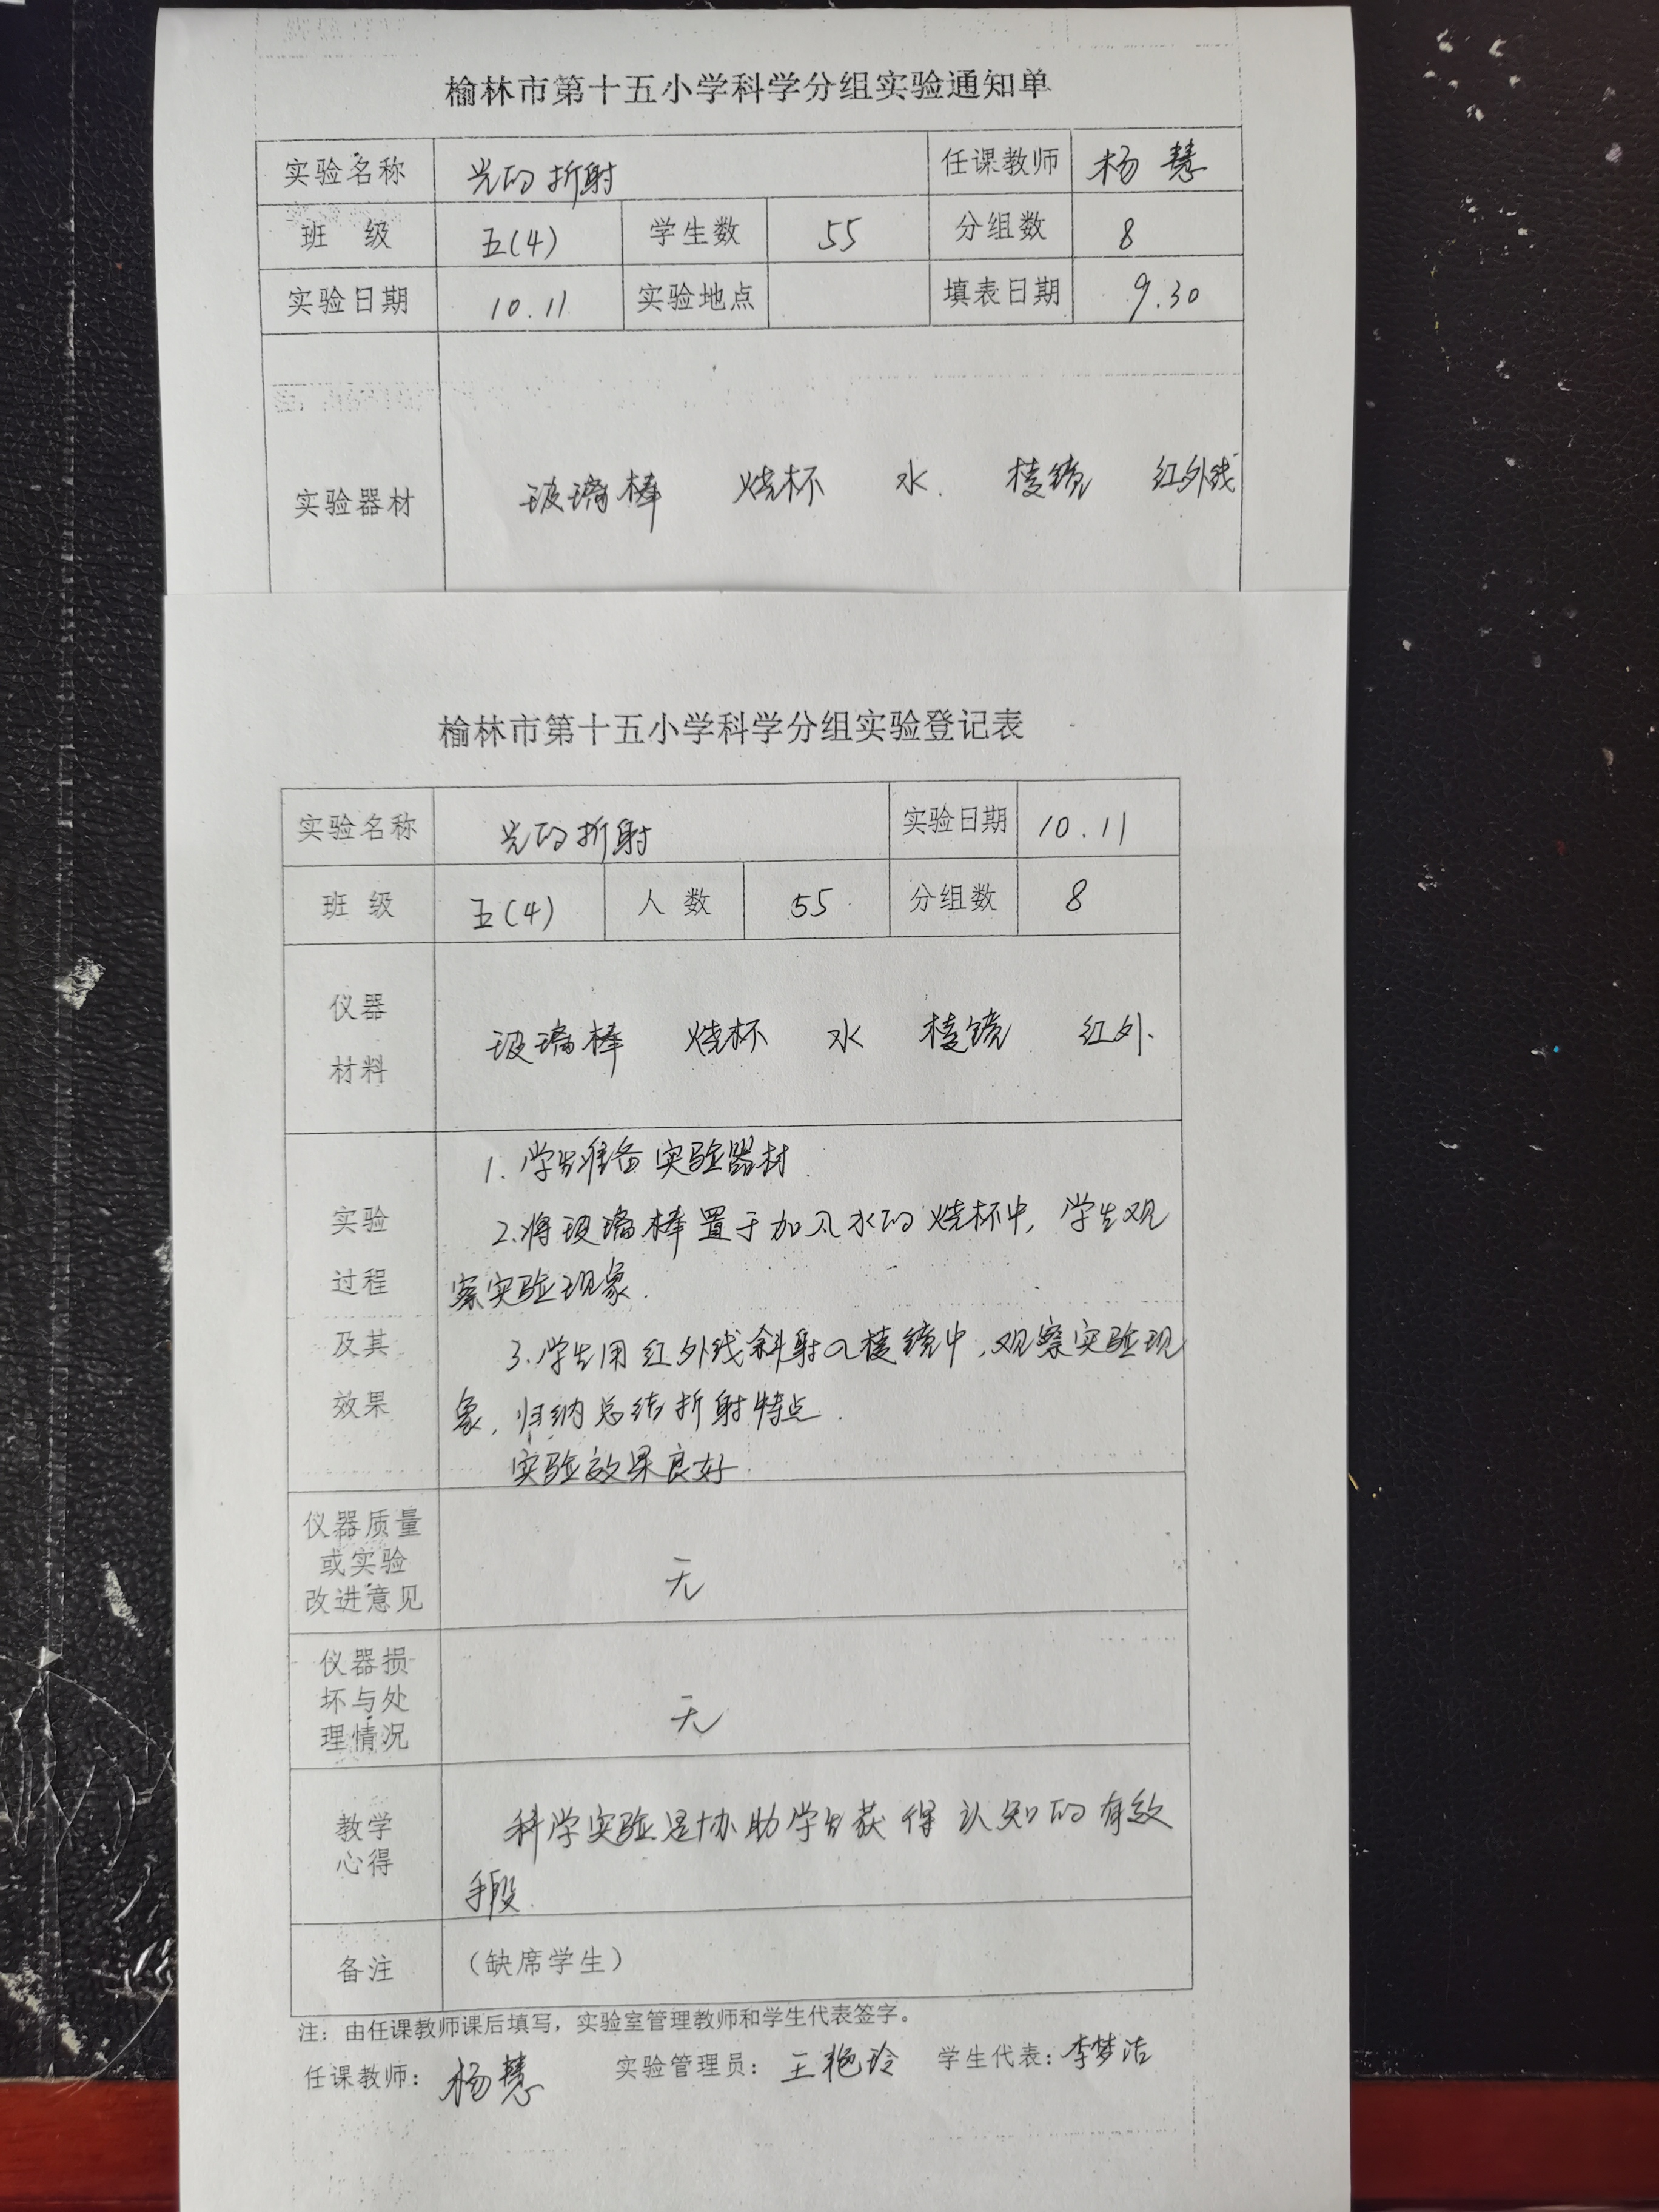 榆林市第十五小学科学分组实验通知单
实验名称 光的折射 任课教师 杨慧
班 级 五(4) 学生数 55 分组数 8
实验日期 10.11 实验地点 填表日期 9.30
实验器材 玻璃棒 烧杯 水. 棱镜 红外线
榆林市第十五小学科学分组实验登记表
实验名称 光的折射 实验日期 10.11
班 级 五(4) 人 数 55 分组数 8
仪器
材料
玻璃棒 烧杯 水 棱镜 红外.
实验
过程
及其
效果
1. 学生准备实验器材.
2.将玻璃棒置于加入水的烧杯中, 学生观
察实验现象.
3.学生用红外线斜射入棱镜中,观察实验现
象, 归纳总结折射特点.
实验效果良好.
仪器质量
或实验
改进意见
无
仪器损
坏与处
理情况
无
教学
心得
科学实验是协助学生获得认知的有效
手段.
备注 (缺席学生)
注：由任课教师课后填写，实验室管理教师和学生代表签字。
任课教师：杨慧 实验管理员：王艳玲 学生代表：李梦洁